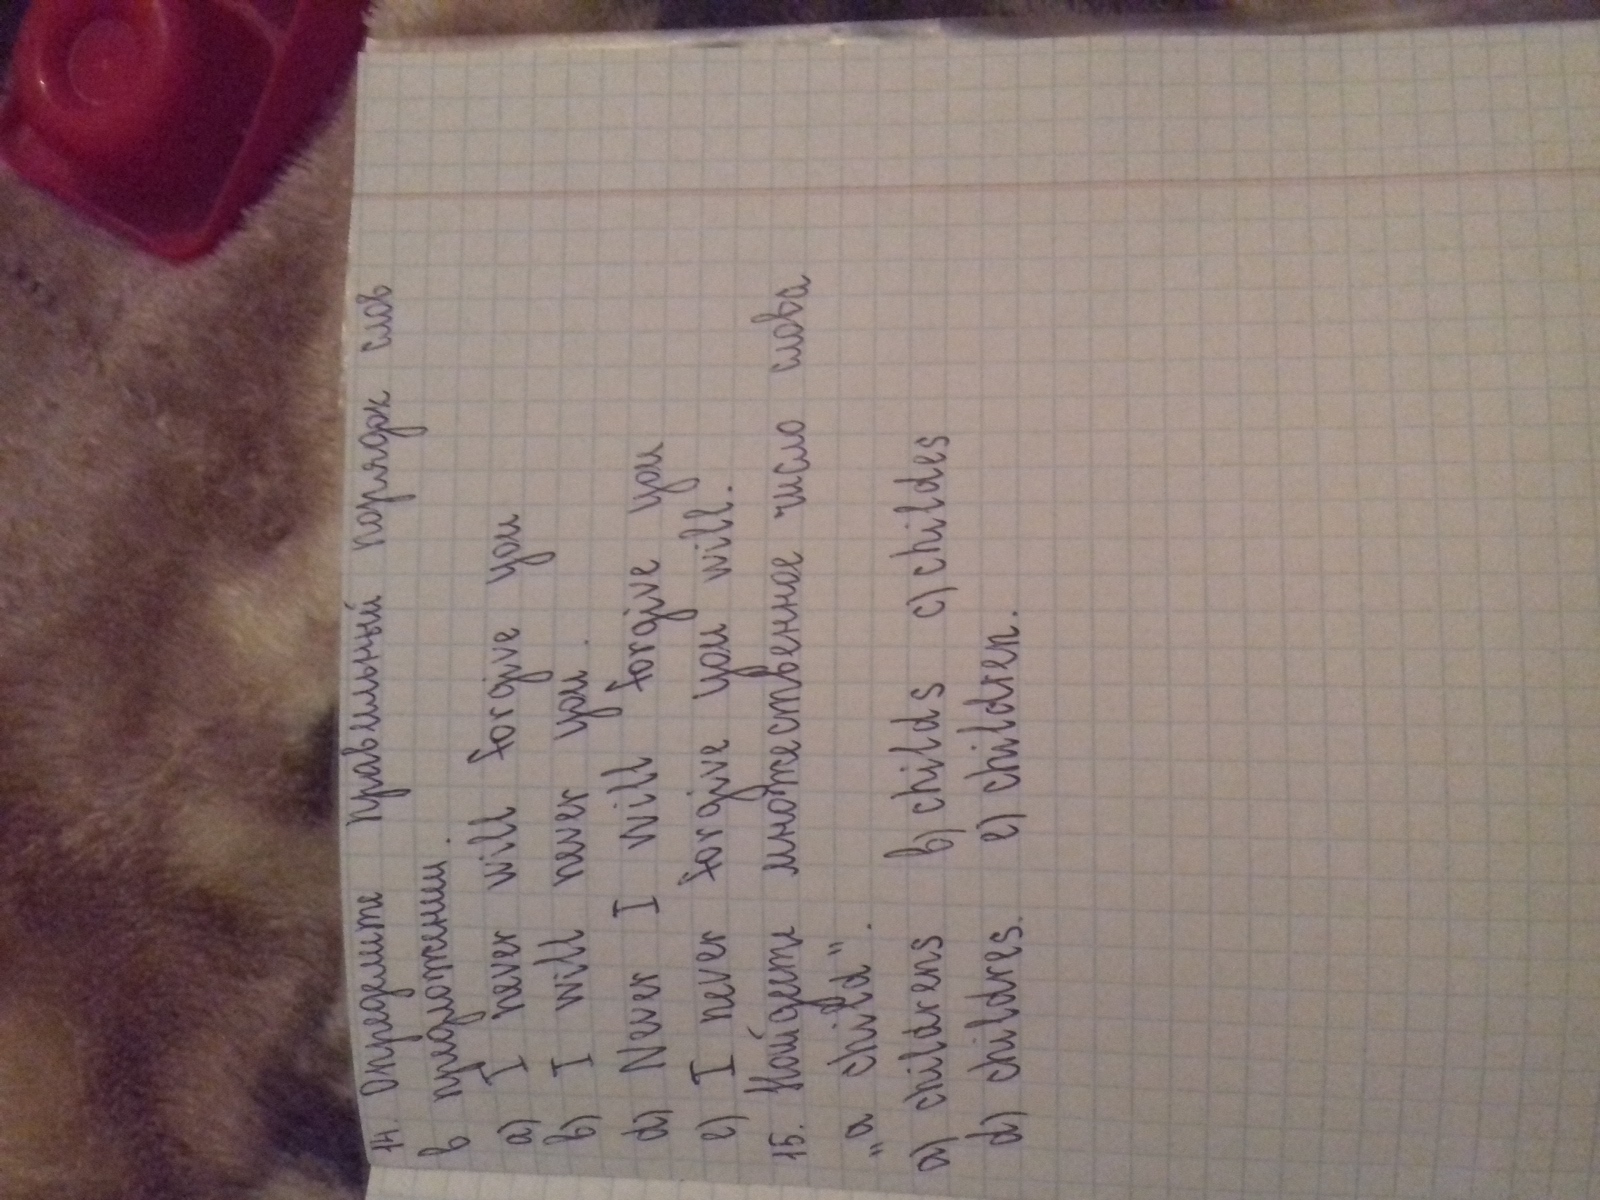 14. Определите правильный порядк слов
в предложении.
a) I never will forgive you
b) I will never you.
d) Never I will forgive you
e) I never forgive you will.
15. Найдете множественное число слова
„a child".
a) childrens b) childs c) childes
d) childres. e) children.